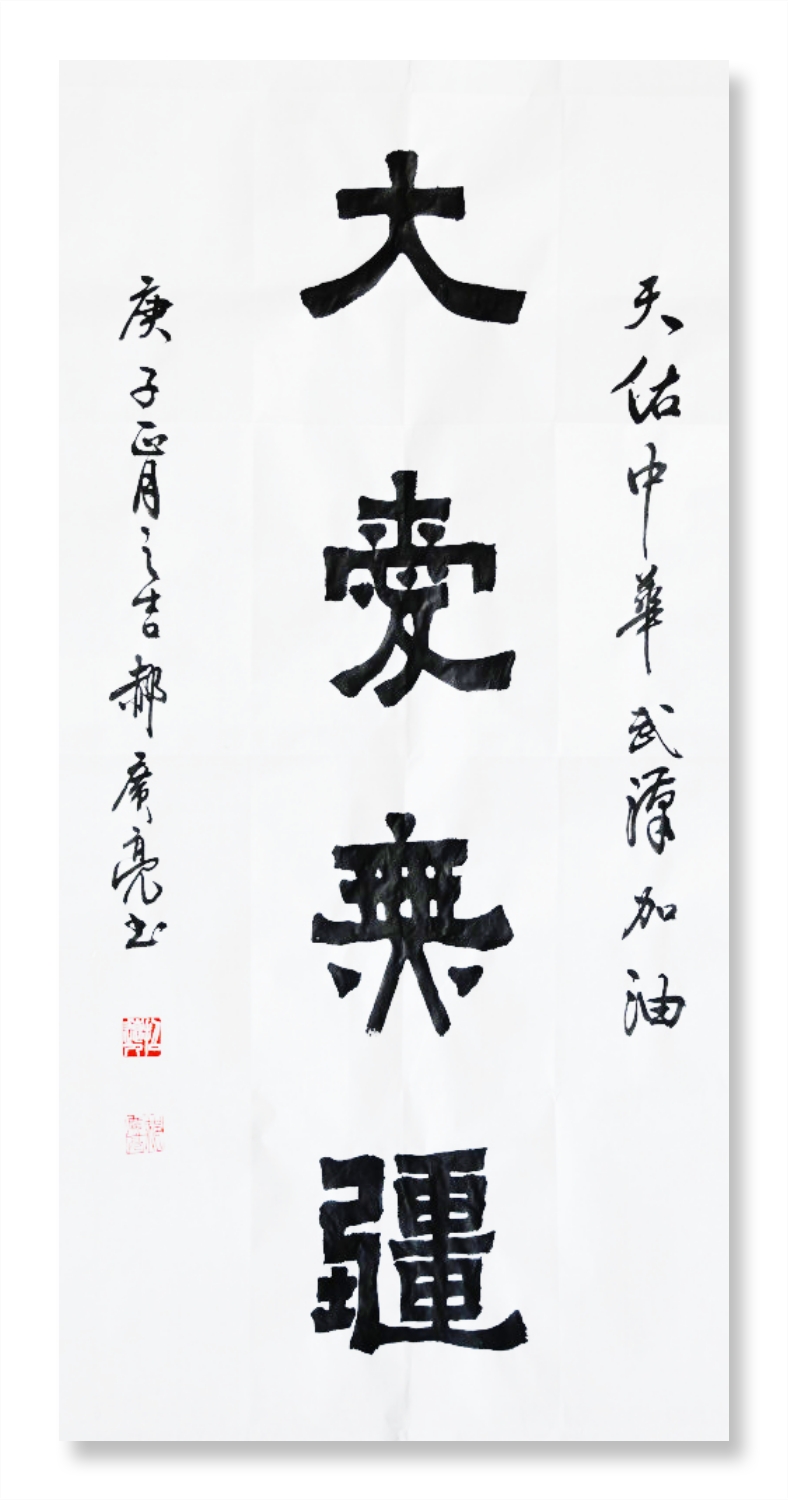 天佑中華武漢加油
大愛無疆
庚子正月之吉郝廣亮书